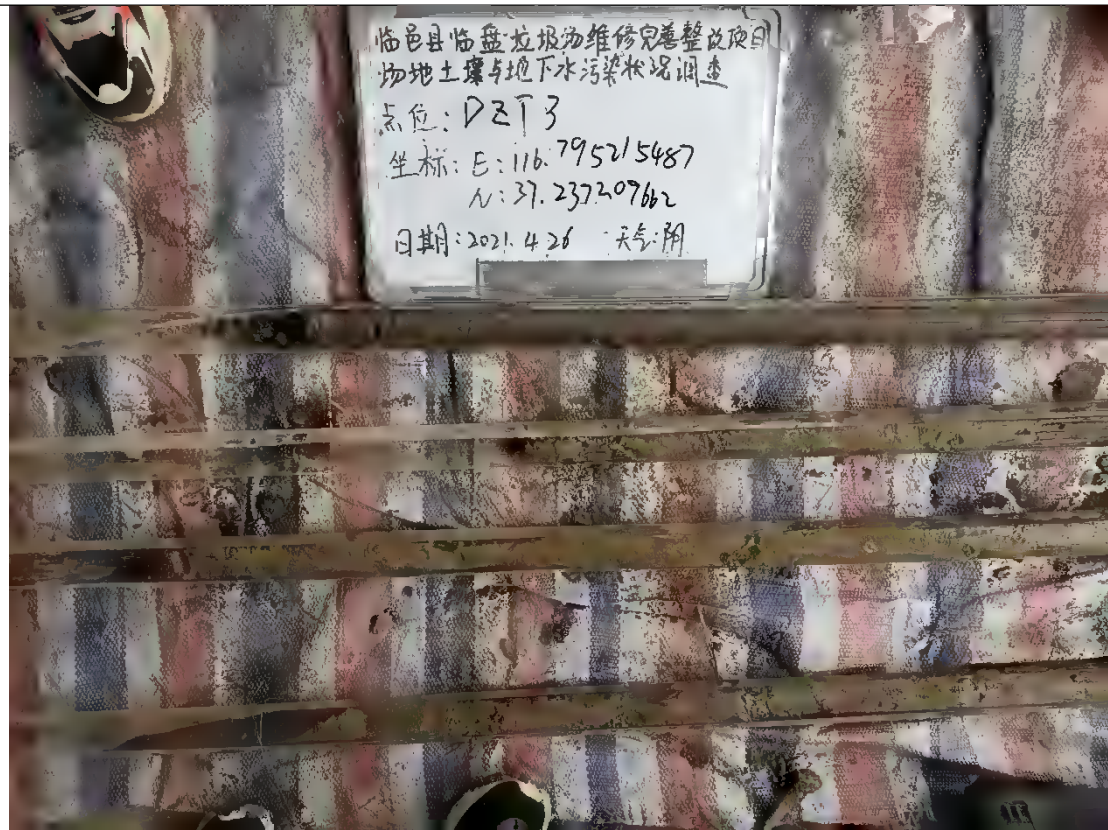 临邑县临盘垃圾场维修完善整改项目
场地土壤与地下水污染状况调查
点位:DZT3
坐标:E:116.795215487
N:37.237209662
日期:2021.4.26 天气:阴